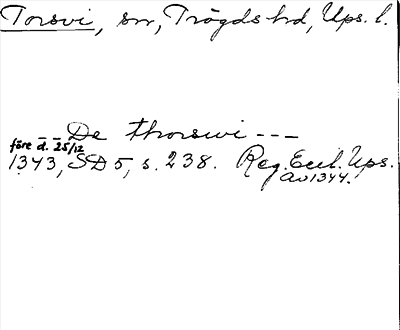 Torsvi, sn, Trögds hd, Ups. l.
– – De thorswi – – –
före d. 25/12
1343, SD 5, s. 238. Reg. Eccl. Ups.
av 1344.